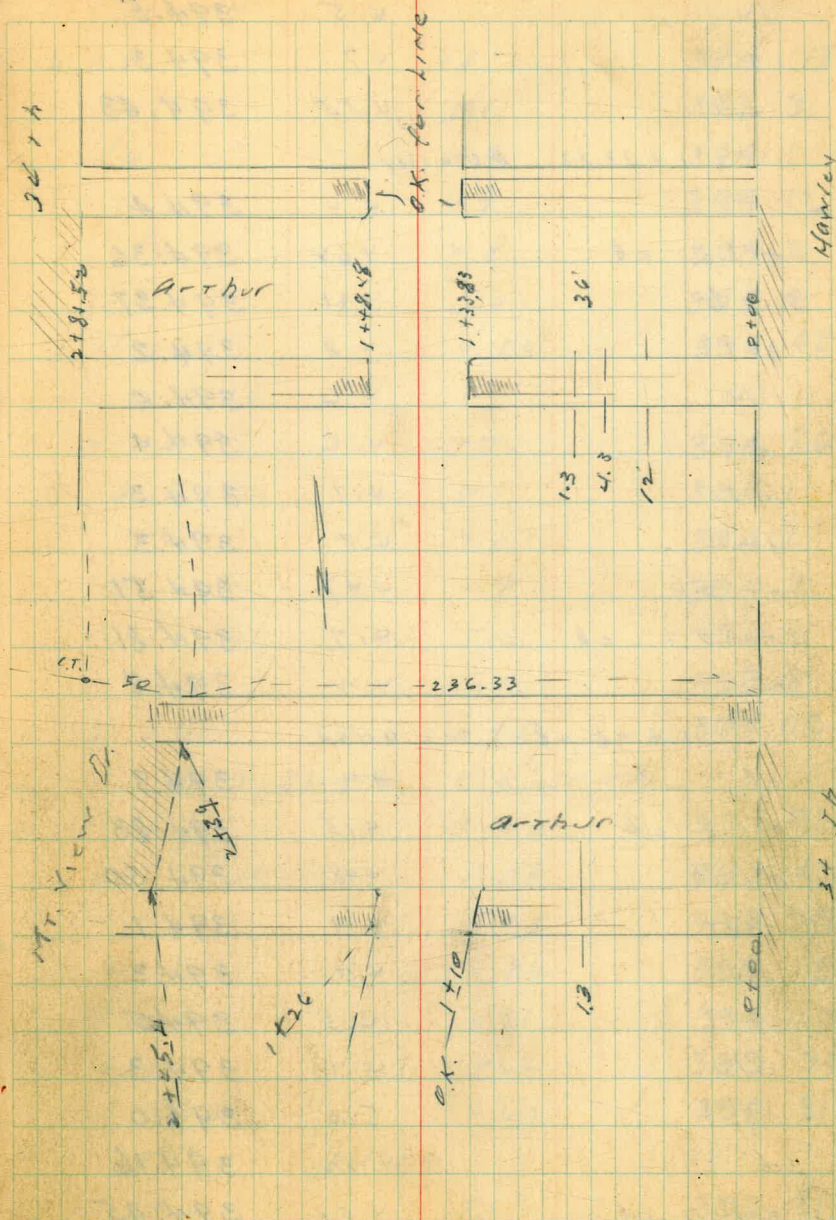 34 th
O.K. for LINE
2+81.52
Arthur
1+48.48
1+33.83
36'
0+00
Hawley
1.3
4.3
12'
N
I.T.
50
236.33
Mt. View Dr.
2+39
Arthur
34 Th
2+45.4
1+26
O.K. 1+10
13
0+00